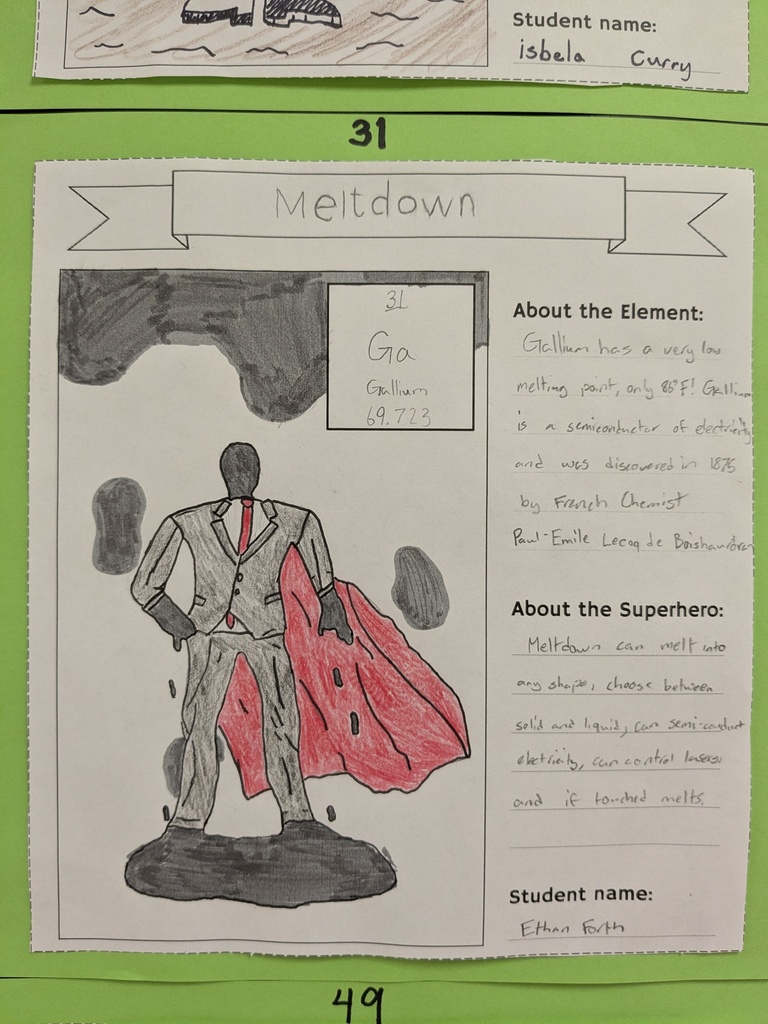 Student name:
isbela Curry
31
Meltdown
31
Ga
Gallium
69.723
About the Element:
Gallium has a very low
melting point, only 85°F! Gallium
is a semiconductor of electricity
and was discovered in 1875
by French Chemist
Paul-Emile Lecoq de Boisbaudran
About the Superhero:
Meltdown can melt into
any shape, choose between
solid and liquid, can semi-conduct
electricity, can control lasers
and if touched melts.
Student name:
Ethan Forth
49